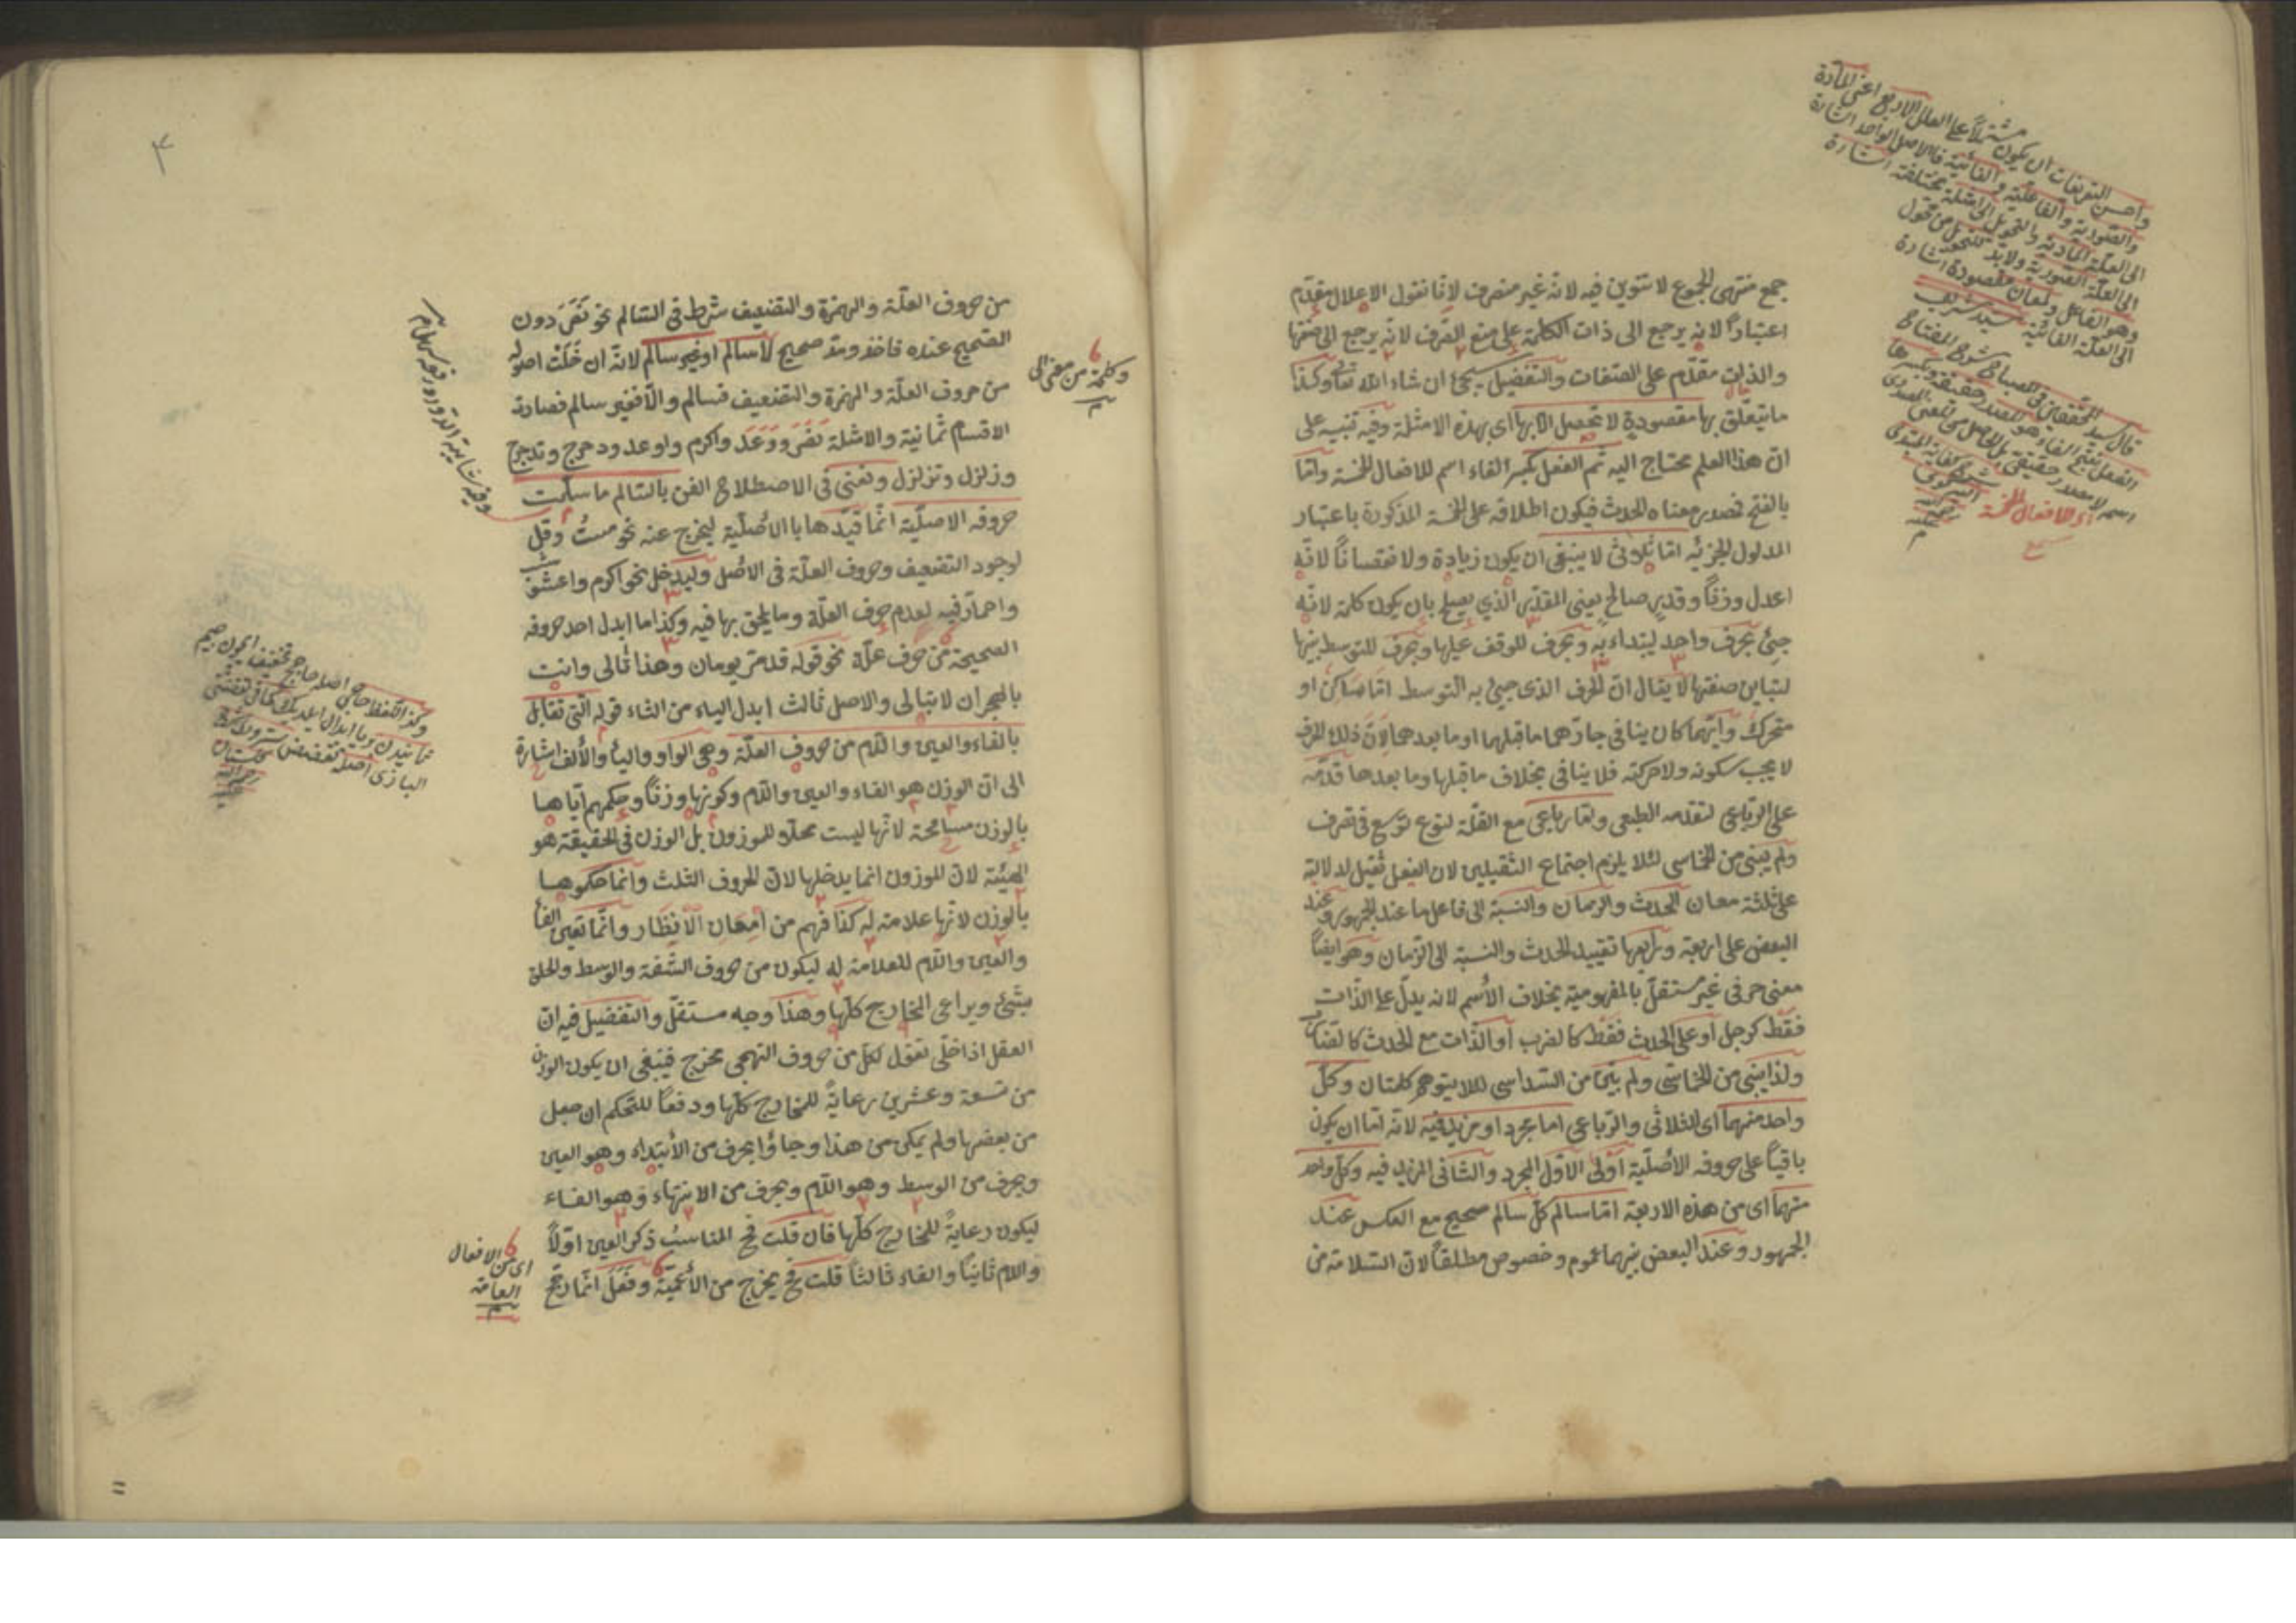 جمع منتهى الجموع لا تنوين فيه لانه غير منصرف لانا نقول الاعلال مقدم
اعتبارًا لانه يرجع الى ذات الكلمة على منع الصرف لانه يرجع الى صفتها
والذات مقدم على الصفات والتفضيل سيجئ ان شاء الله تعالى وكذا
ما يتعلق بها مقصودة لا تحصل الا بها اى بهذه الامثلة وفيه تنبيه على
ان هذا العلم محتاج اليه ثم الفعل بكسر الفاء اسم للافعال الخمسة واما
بالفتح فصدر معناه الحدث فيكون اطلاقه على الخمسة المذكورة باعتبار
المدلول الجزئه اما ثلاثى لا ينبغى ان يكون زيادة ولا نقصانًا لانه
اعدل وزنًا وقدير صالح يعنى المقدر الذي يصلح بان يكون كلمة لانه
جيئ بحرف واحد ليتداء به وبحرف للوقف عليها وبحرف للتوسط بينها
لتباين صفتها لا يقال ان الحرف الذى جيئ به التوسط اما ساكن او
متحرك وايهما كان ينافى جارهما ما قبلهما او ما بعدهما لان ذلك الحرف
لا يجب سكونه ولا حركته فلا ينافى بخلاف ما قبلها وما بعدها قدمه
على الرباعى لتقدمه الطبعى ولما رباعى مع القلة لنوع توسع فى تصرف
ولم يبنى من الخماسى لئلا يلزم اجتماع الثقيلين لان الفعل ثقيل لدلالته
على ثلثة معان الحدث والزمان والنسبة الى فاعل ما عند الجمهور وعند
البعض على اربعة ورابعها تقييد الحدث والنسبة الى الزمان وهو ايضًا
معنى حرفى غير مستقل بالمفهومية بخلاف الاسم لانه يدل على الذات
فقط كرجل او على الحدث فقط كالضرب او الذات مع الحدث كالضارب
ولذا يبنى من الخماسى ولم يبن من السداسى لئلا يتوهم كلمتان وكل
واحد منهما اى الثلاثى والرباعى اما مجرد او مزيد فيه لانه اما ان يكون
باقيًا على حروفه الاصلية اولى الاول المجرد والثانى المزيد فيه وكل واحد
منهما اى من هذه الاربعة اما سالم كل سالم صحيح مع العكس عند
الجمهور وعند البعض بينهما عموم وخصوص مطلقا لان السلامة من
واحسن التعريفات ان يكون مشتملًا على العلل الاربع اعنى المادة
والصورية والفاعلية والغائية فالاصل الواحد اشارة
الى العلة المادية والتحويل الى امثلة مختلفة اشارة
الى العلة الصورية ولا بد للتحويل من محول
وهو الفاعل ولمعان مقصودة اشارة
الى العلة الغائية سيد شريف
قال سيد المحققين فى المصباح شرح المفتاح
اى الافعال الخمسة
٤
من حروف العلة والهمزة والتضعيف شرط فى السالم نحو نَصَرَ دون
الصحيح عنده فاخذ ومد صحيح لا سالم او غير سالم لانه ان خلت اصوله
من حروف العلة والهمزة والتضعيف فسالم والا فغير سالم فصارت
الاقسام ثمانية والامثلة نَصَرَ ووَعَدَ واكرم واوعد ودحرج وتدحرج
وزلزل وتزلزل ونعنى فى الاصطلاح الفن بالسالم ما سلمت
حروفه الاصلية انما قيدها با الاصلية ليخرج عنه نحو مست وقل
لوجود التضعيف وحروف العلة فى الاصل وليدخل نحو اكرم واعشوشب
واحمار فيه لعدم حرف العلة وما يلحق بها فيه وكذا ما ابدل احد حروفه
الصحيحة من حرف علة نحو قوله قد مر يومان وهذا ثالى وانت
بالهجران لا تبالى والاصل ثالث ابدل الياء من الثاء قوله التى تقابل
بالفاء والعين واللام من حروف العلة وهى الواو والياء والالف اشارة
الى ان الوزن هو الفاء والعين واللام وكونها وزنًا وحكمهم اياها
بالوزن مسامحة لانها ليست محلا للموزون بل الوزن فى الحقيقة هو
الهيئة لان الموزون انما يدخلها لان الحروف الثلث وانما حكموها
بالوزن لانها علامة له كذا فهم من امعان الانظار وانما تعين الفاء
والعين واللام للعلامة له ليكون من حروف الشفة والوسط والحلق
بشئ ويراعى المخارج كلها وهذا وجه مستقل والتفضيل فيه ان
العقل اذا خلى نقول لكل من حروف التهجى مخرج فينبغى ان يكون الوزن
من تسعة وعشرين رعاية للمخارج كلها ودفعًا للتحكم ان جعل
من بعضها ولم يمكن من هذا وجاؤا بحرف من الابتداء وهو العين
وبحرف من الوسط وهو اللام وبحرف من الانتهاء وهو الفاء
ليكون رعايةً للمخارج كلها فان قلت فح المناسب ذكر العين اولًا
واللام ثانيًا والفاء ثالثًا قلت فح يخرج من الاعمية وفَعَلَ انما رجح
وكلمة من معنى الى
اى من الافعال
العامة